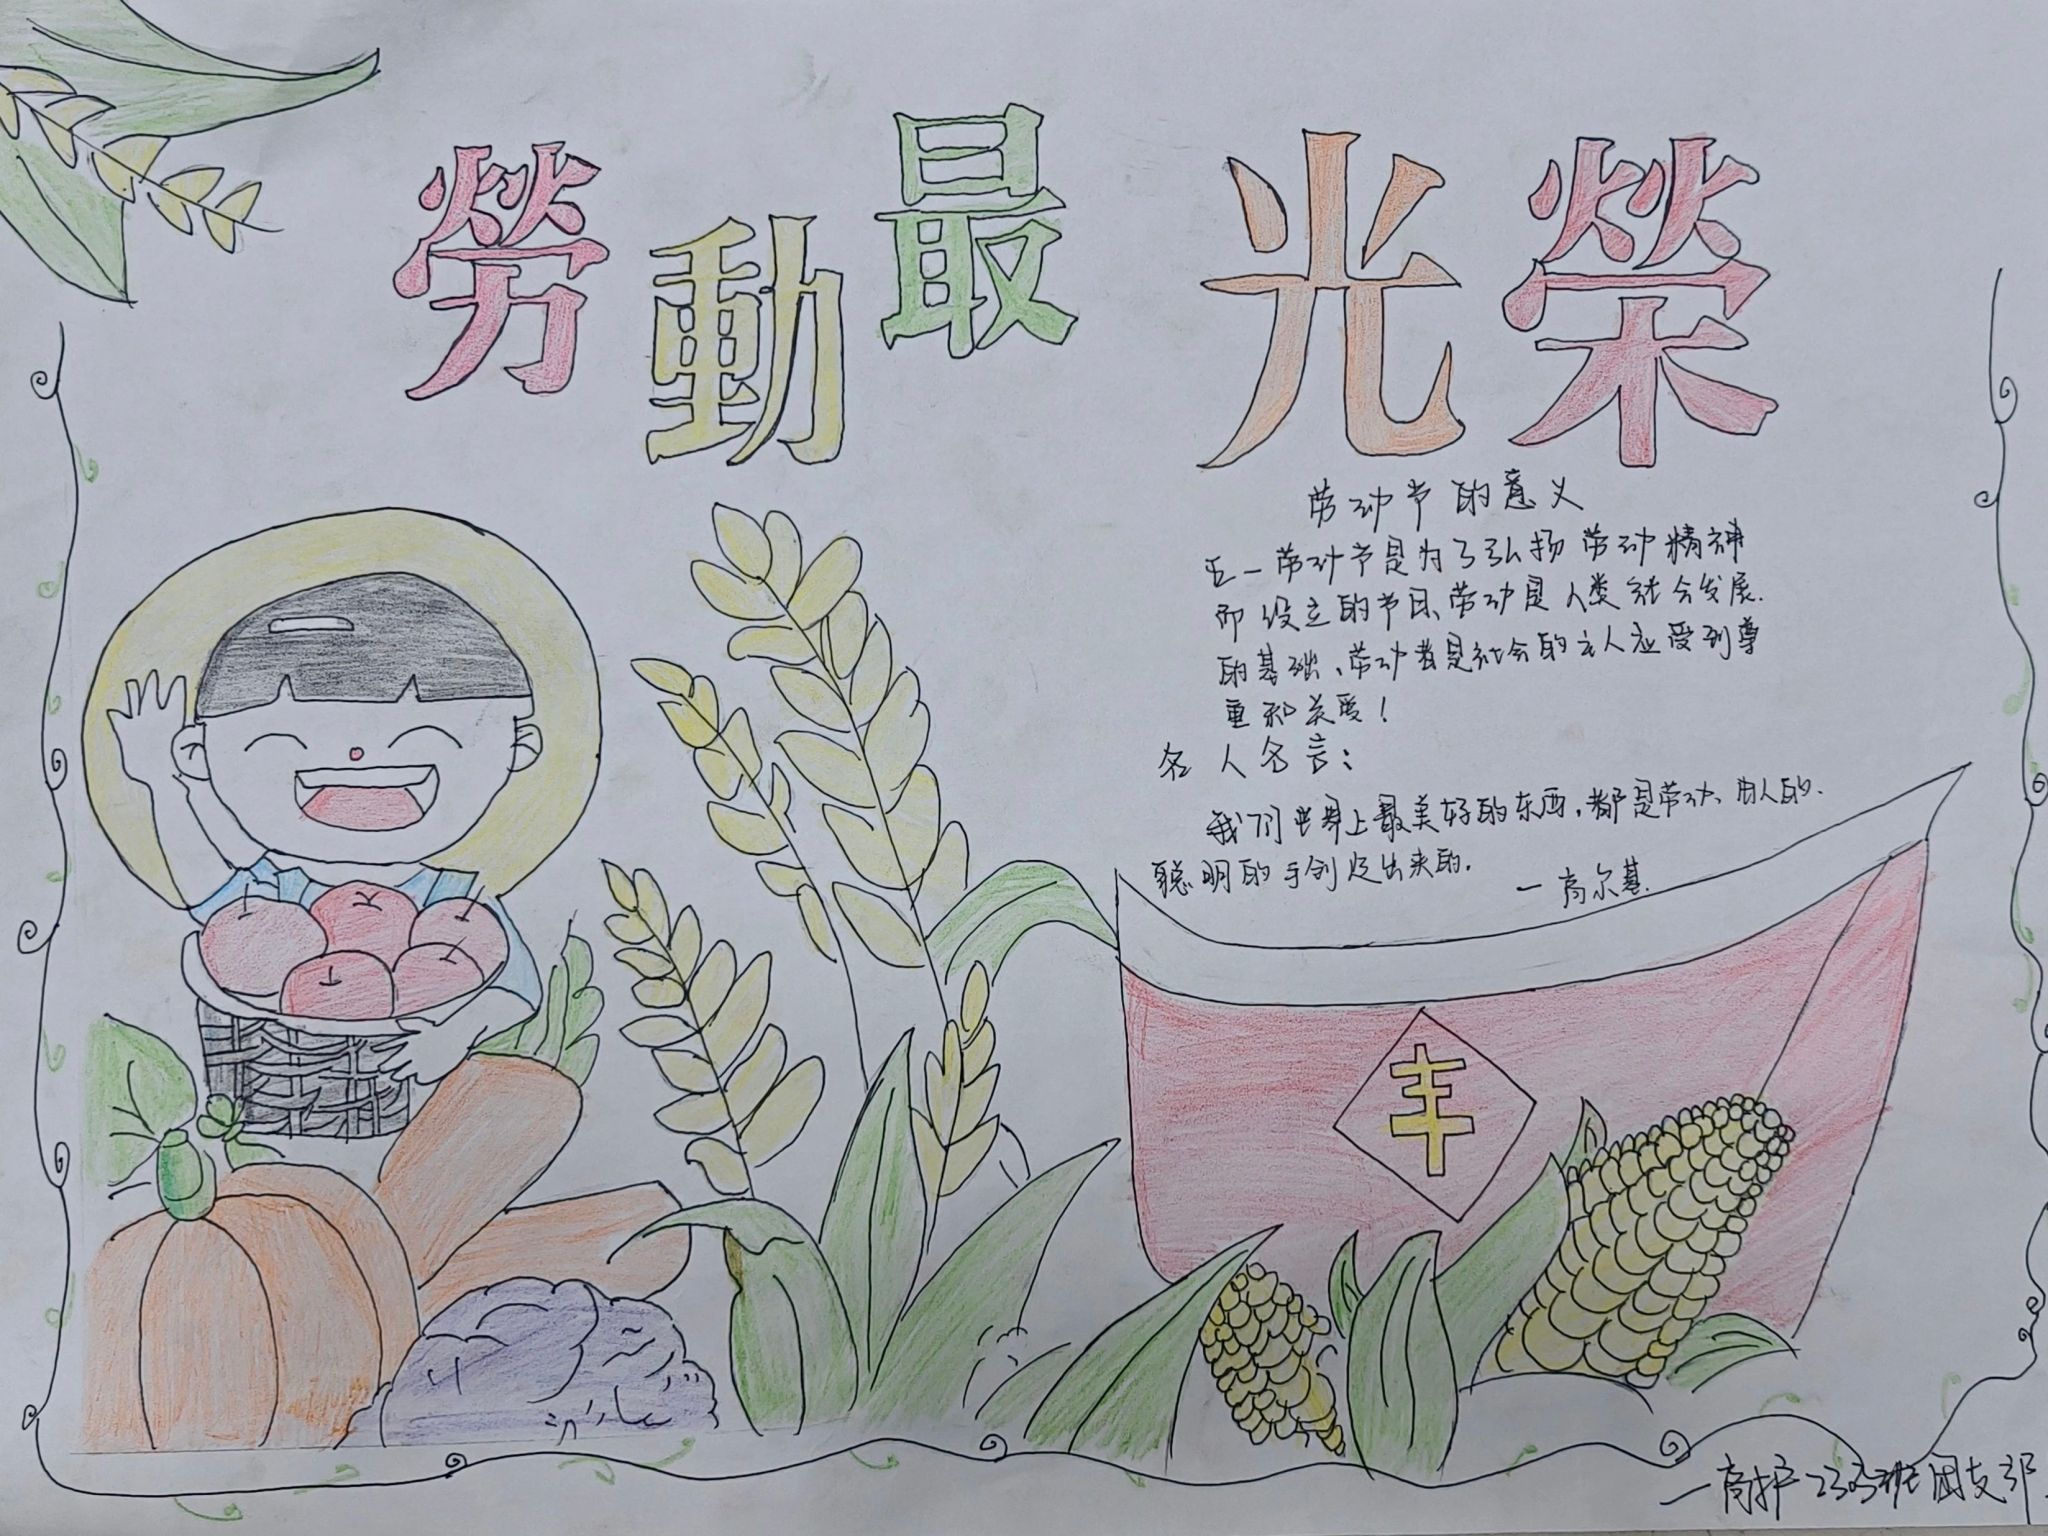 勞動最光榮
劳动节的意义
五一劳动节是为了弘扬劳动精神
而设立的节日、劳动是人类社会发展.
的基础、劳动者是社会的主人应受到尊
重和关爱！
名人名言：
我们世界上最美好的东西，都是劳动、由人的.
聪明的手创造出来的.
—高尔基.
丰
—高护2303班团支部